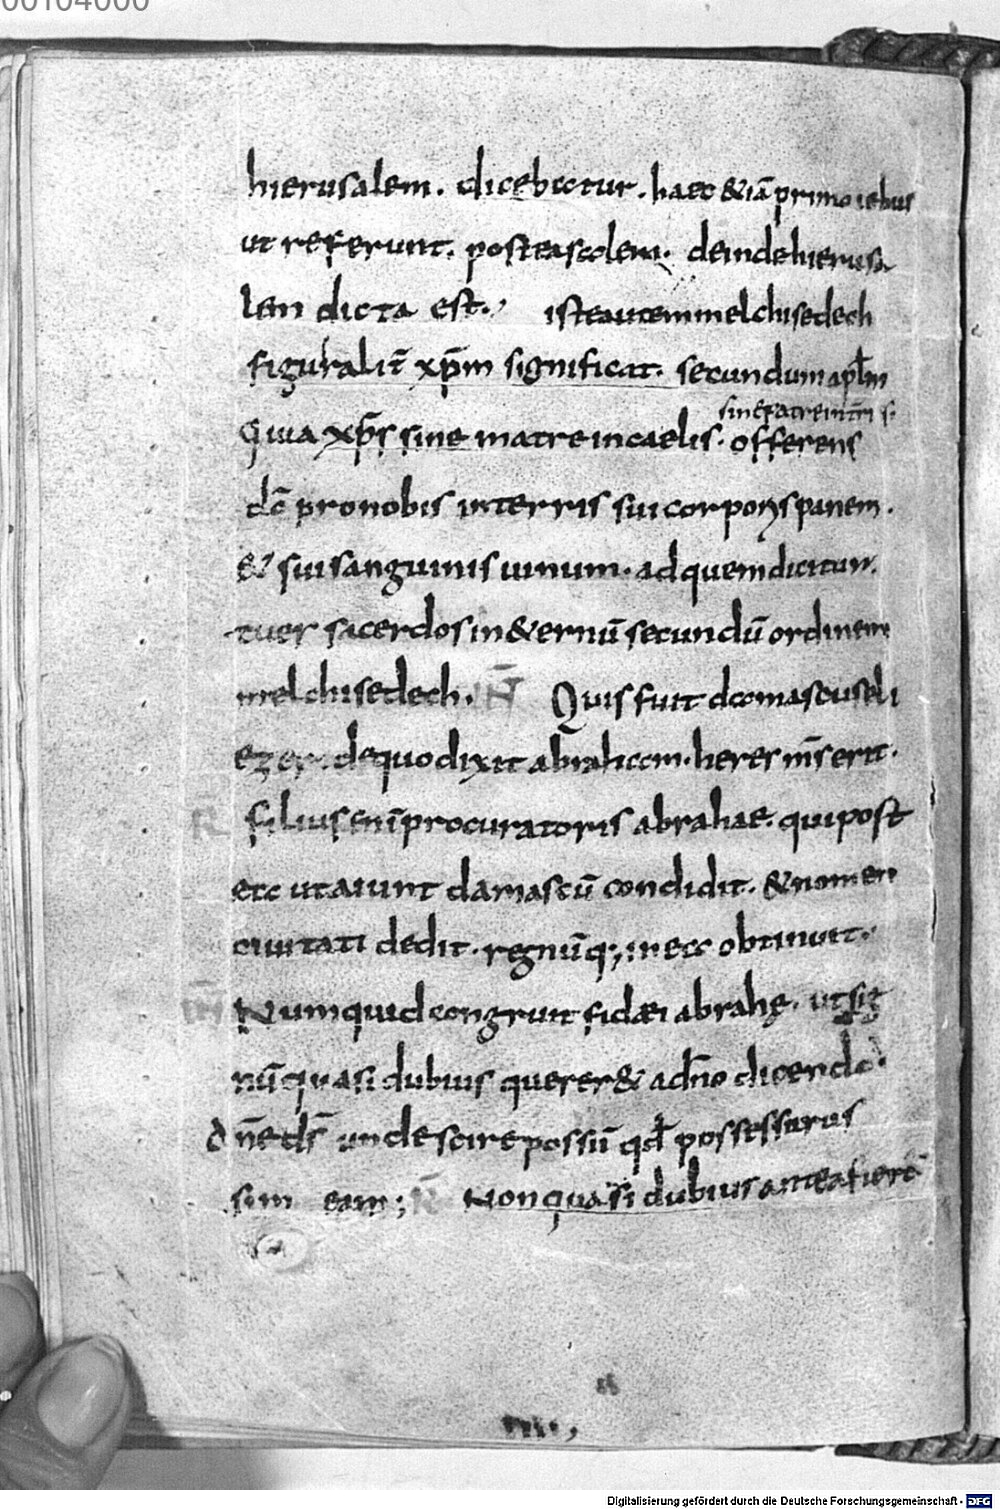 00104000
hierusalem. dicebatur. haec &iā primo iebus
ut referunt. postea solem. deinde hierusa
lem dicta est. iste autem melchisedech
figuralit̄ xp̄m significat. secundum apl̄m
sine patre in tr̄ri s.
Quia xp̄s sine matre in caelis. offerens
dō pro nobis in terris sui corporis panem.
& sui sanguinis uinum. ad quem dicitur.
tu es sacerdos in &ernū secundū ordinem
melchisedech. IN̄ Quis fuit damascus eli
ezer. de quo dixit abraham. heres m̄s erit.
R filius enī procuratoris abrahae. qui post
ea ut aiunt damascū condidit. & nomen
ciuitati dedit. regnūq; in ea obtinuit.
IN̄ Numquid congruit fidaei abrahę. ut sic
nūc quasi dubius querer& a dn̄o dicendo.
dn̄e ds̄ unde scire possū qd̄ possessurus
sim eam; R̄ Non quasi dubius antea fierē
VIII.
Digitalisierung gefördert durch die Deutsche Forschungsgemeinschaft - DFG